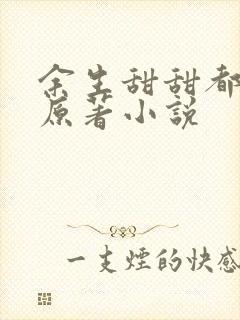 余生甜甜都
原著小說
一支煙的快感